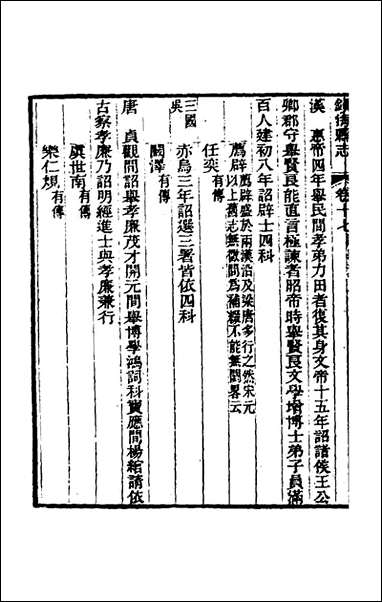 鎮海縣志 卷十七
漢 惠帝四年舉民間孝弟力田者復其身文帝十五年詔諸侯王公
卿郡守舉賢良能直言極諫者昭帝時舉賢良文學增博士弟子員滿
百人建初八年詔辟士四科
薦辟薦辟盛於兩漢沿及梁唐多行之然宋元
以上舊志無徵間爲補輯不能無闕畧云
任奕有傳
三國
吳
赤烏三年詔選三署皆依四科
闞澤有傳
唐 貞觀間詔舉孝廉茂才開元間舉博學鴻詞科寶應間楊綰請依
古察孝廉乃詔明經進士與孝廉兼行
虞世南有傳
欒仁規有傳